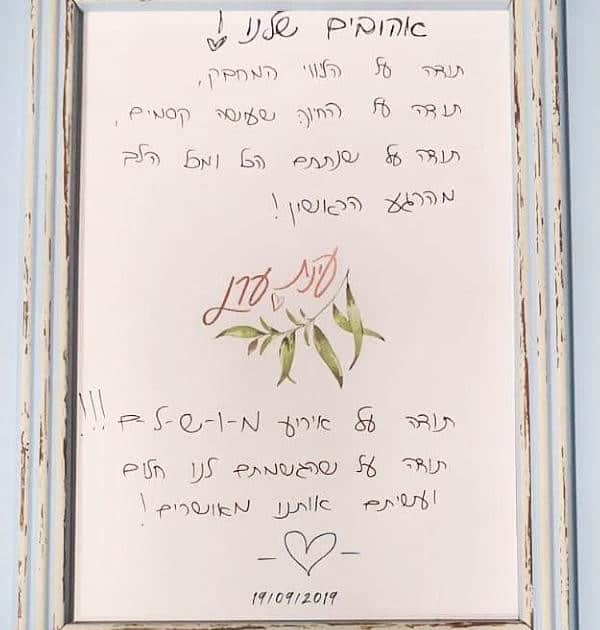 אהובים שלנו!
תודה על הלווי המחבק,
תודה על החיוך שעושה קסמים,
תודה על שנתתם הכל ומכל הלב
מהרגע הראשון!
עינת ערן
תודה על אירוע מ-ו-ש-ל-ם!!!
תודה על שהגשמתם לנו חלום
ועשיתם אותנו מאושרים!
19/09/2019